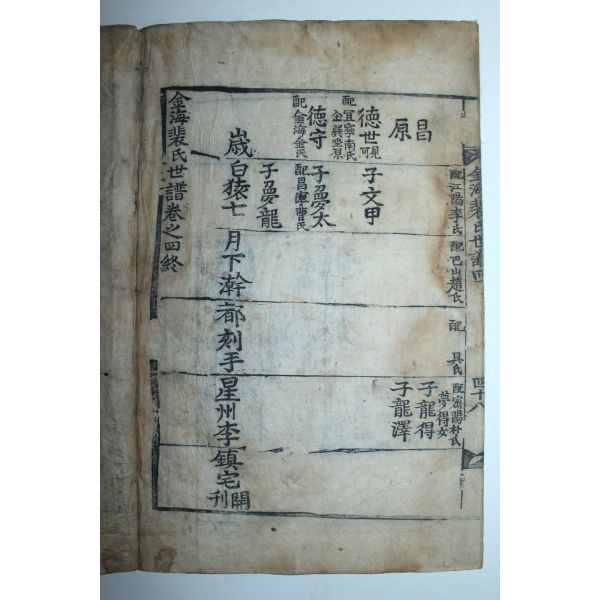 金海裴氏世譜四
四十八
配江陽李氏
配巴山趙氏
配 具氏
配密陽朴氏
夢得女
昌原
子龍得
子龍澤
德世
見可
子文甲
配宜寧南氏
德守
子夢太
配金海金氏
配昌寧曹氏
子夢龍
歲白猿七月下澣都刻手星州李鎮宅開刊
金海裴氏世譜卷之四終